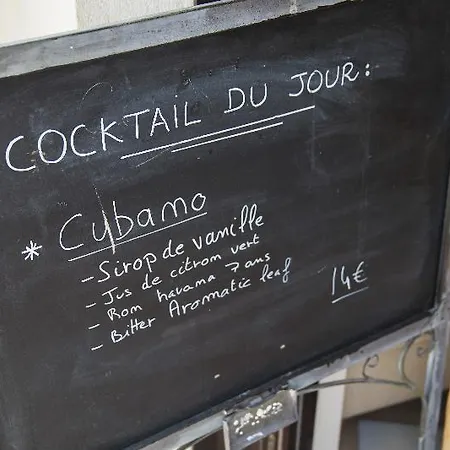 COCKTAIL DU JOUR:
* Cubamo
- Sirop de vanille
- Jus de citrom vert
- Rom havana 7 ans
- Bitter Aromatic leaf
14€